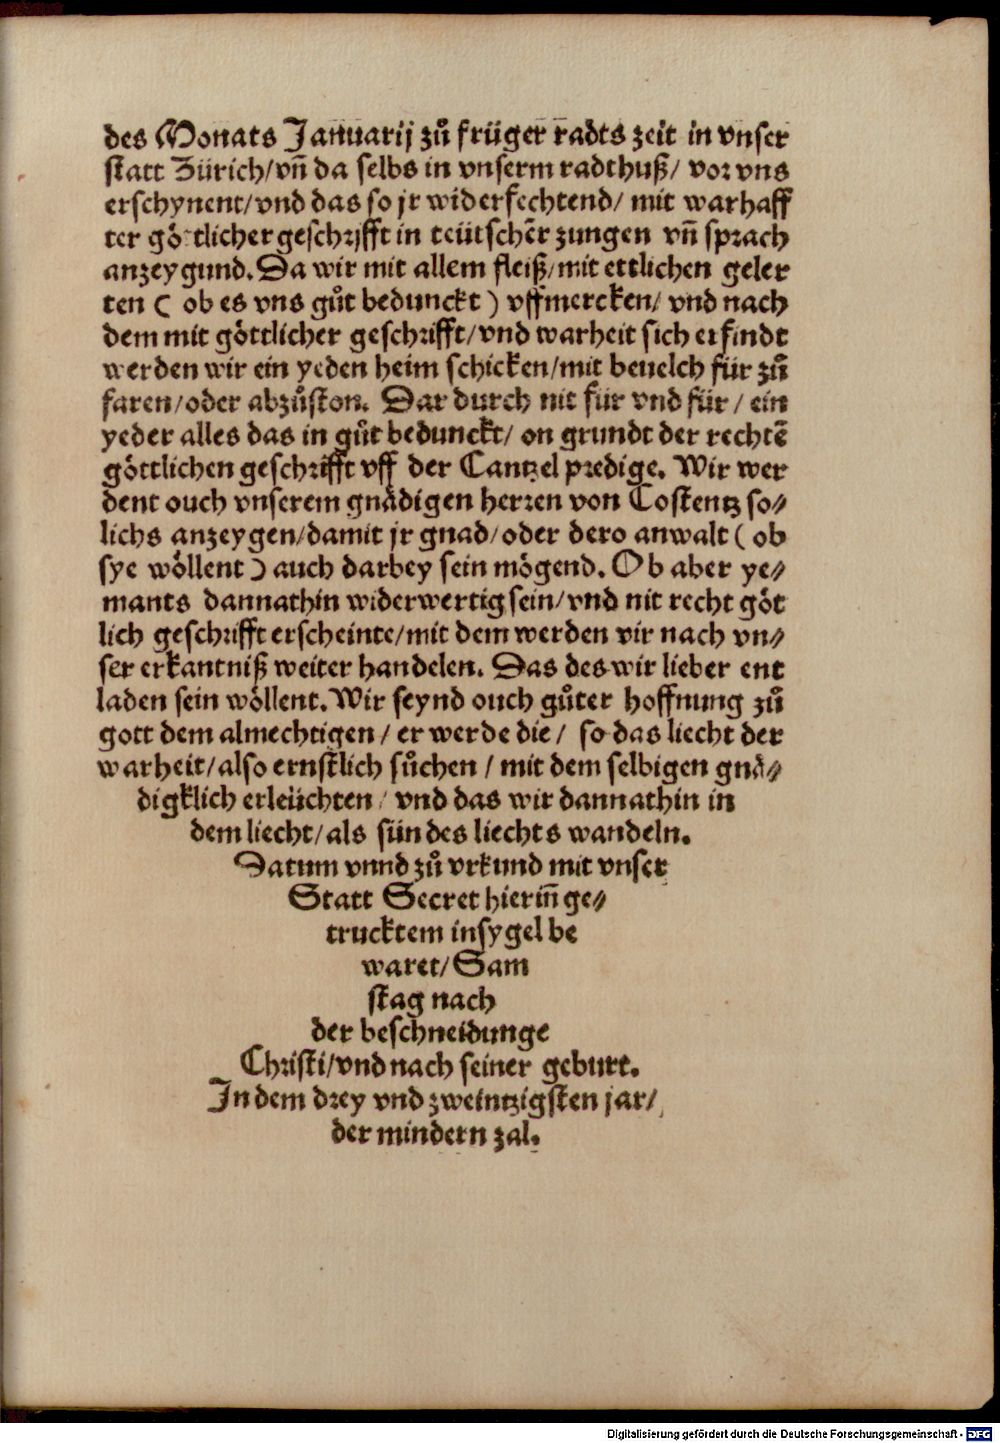 des Monats Januarij zů früger radts zeit in vnser
statt Zürich/vñ da selbs in vnserm radthuß/ vor vns
erschynent/vnd das so jr widerfechtend/ mit warhaff
ter götlicher geschrifft in teütscher zungen vñ sprach
anzeygund. Da wir mit allem fleiß/mit ettlichen geler
ten ( ob es vns gůt bedunckt ) vffmercken/ vnd nach
dem mit göttlicher geschrifft/vnd warheit sich erfindt
werden wir ein yeden heim schicken/mit beuelch für zů
faren/oder abzůston. Dar durch nit für vnd für / ein
yeder alles das in gůt bedunckt/ on grundt der rechtẽ
göttlichen geschrifft vff der Cantzel predige. Wir wer
dent ouch vnserem gnädigen herren von Costentz so⸗
lichs anzeygen/damit jr gnad/oder dero anwalt ( ob
sye wöllent ) auch darbey sein mögend. Ob aber ye⸗
mants dannathin widerwertig sein/vnd nit recht göt
lich geschrifft erscheinte/mit dem werden vir nach vn⸗
ser erkantniß weiter handelen. Das des wir lieber ent
laden sein wöllent. Wir seynd ouch gůter hoffnung zů
gott dem almechtigen/ er werde die/ so das liecht der
warheit/also ernstlich sůchen / mit dem selbigen gnä⸗
digklich erleüchten/ vnd das wir dannathin in
dem liecht/als sün des liechts wandeln.
Datum vnnd zů vrkund mit vnser
Statt Secret hierin̄ ge⸗
trucktem insygel be
waret/Sam
stag nach
der beschneidunge
Christi/vnd nach seiner geburt.
In dem drey vnd zweintzigsten jar/
der mindern zal.
Digitalisierung gefördert durch die Deutsche Forschungsgemeinschaft - DFG